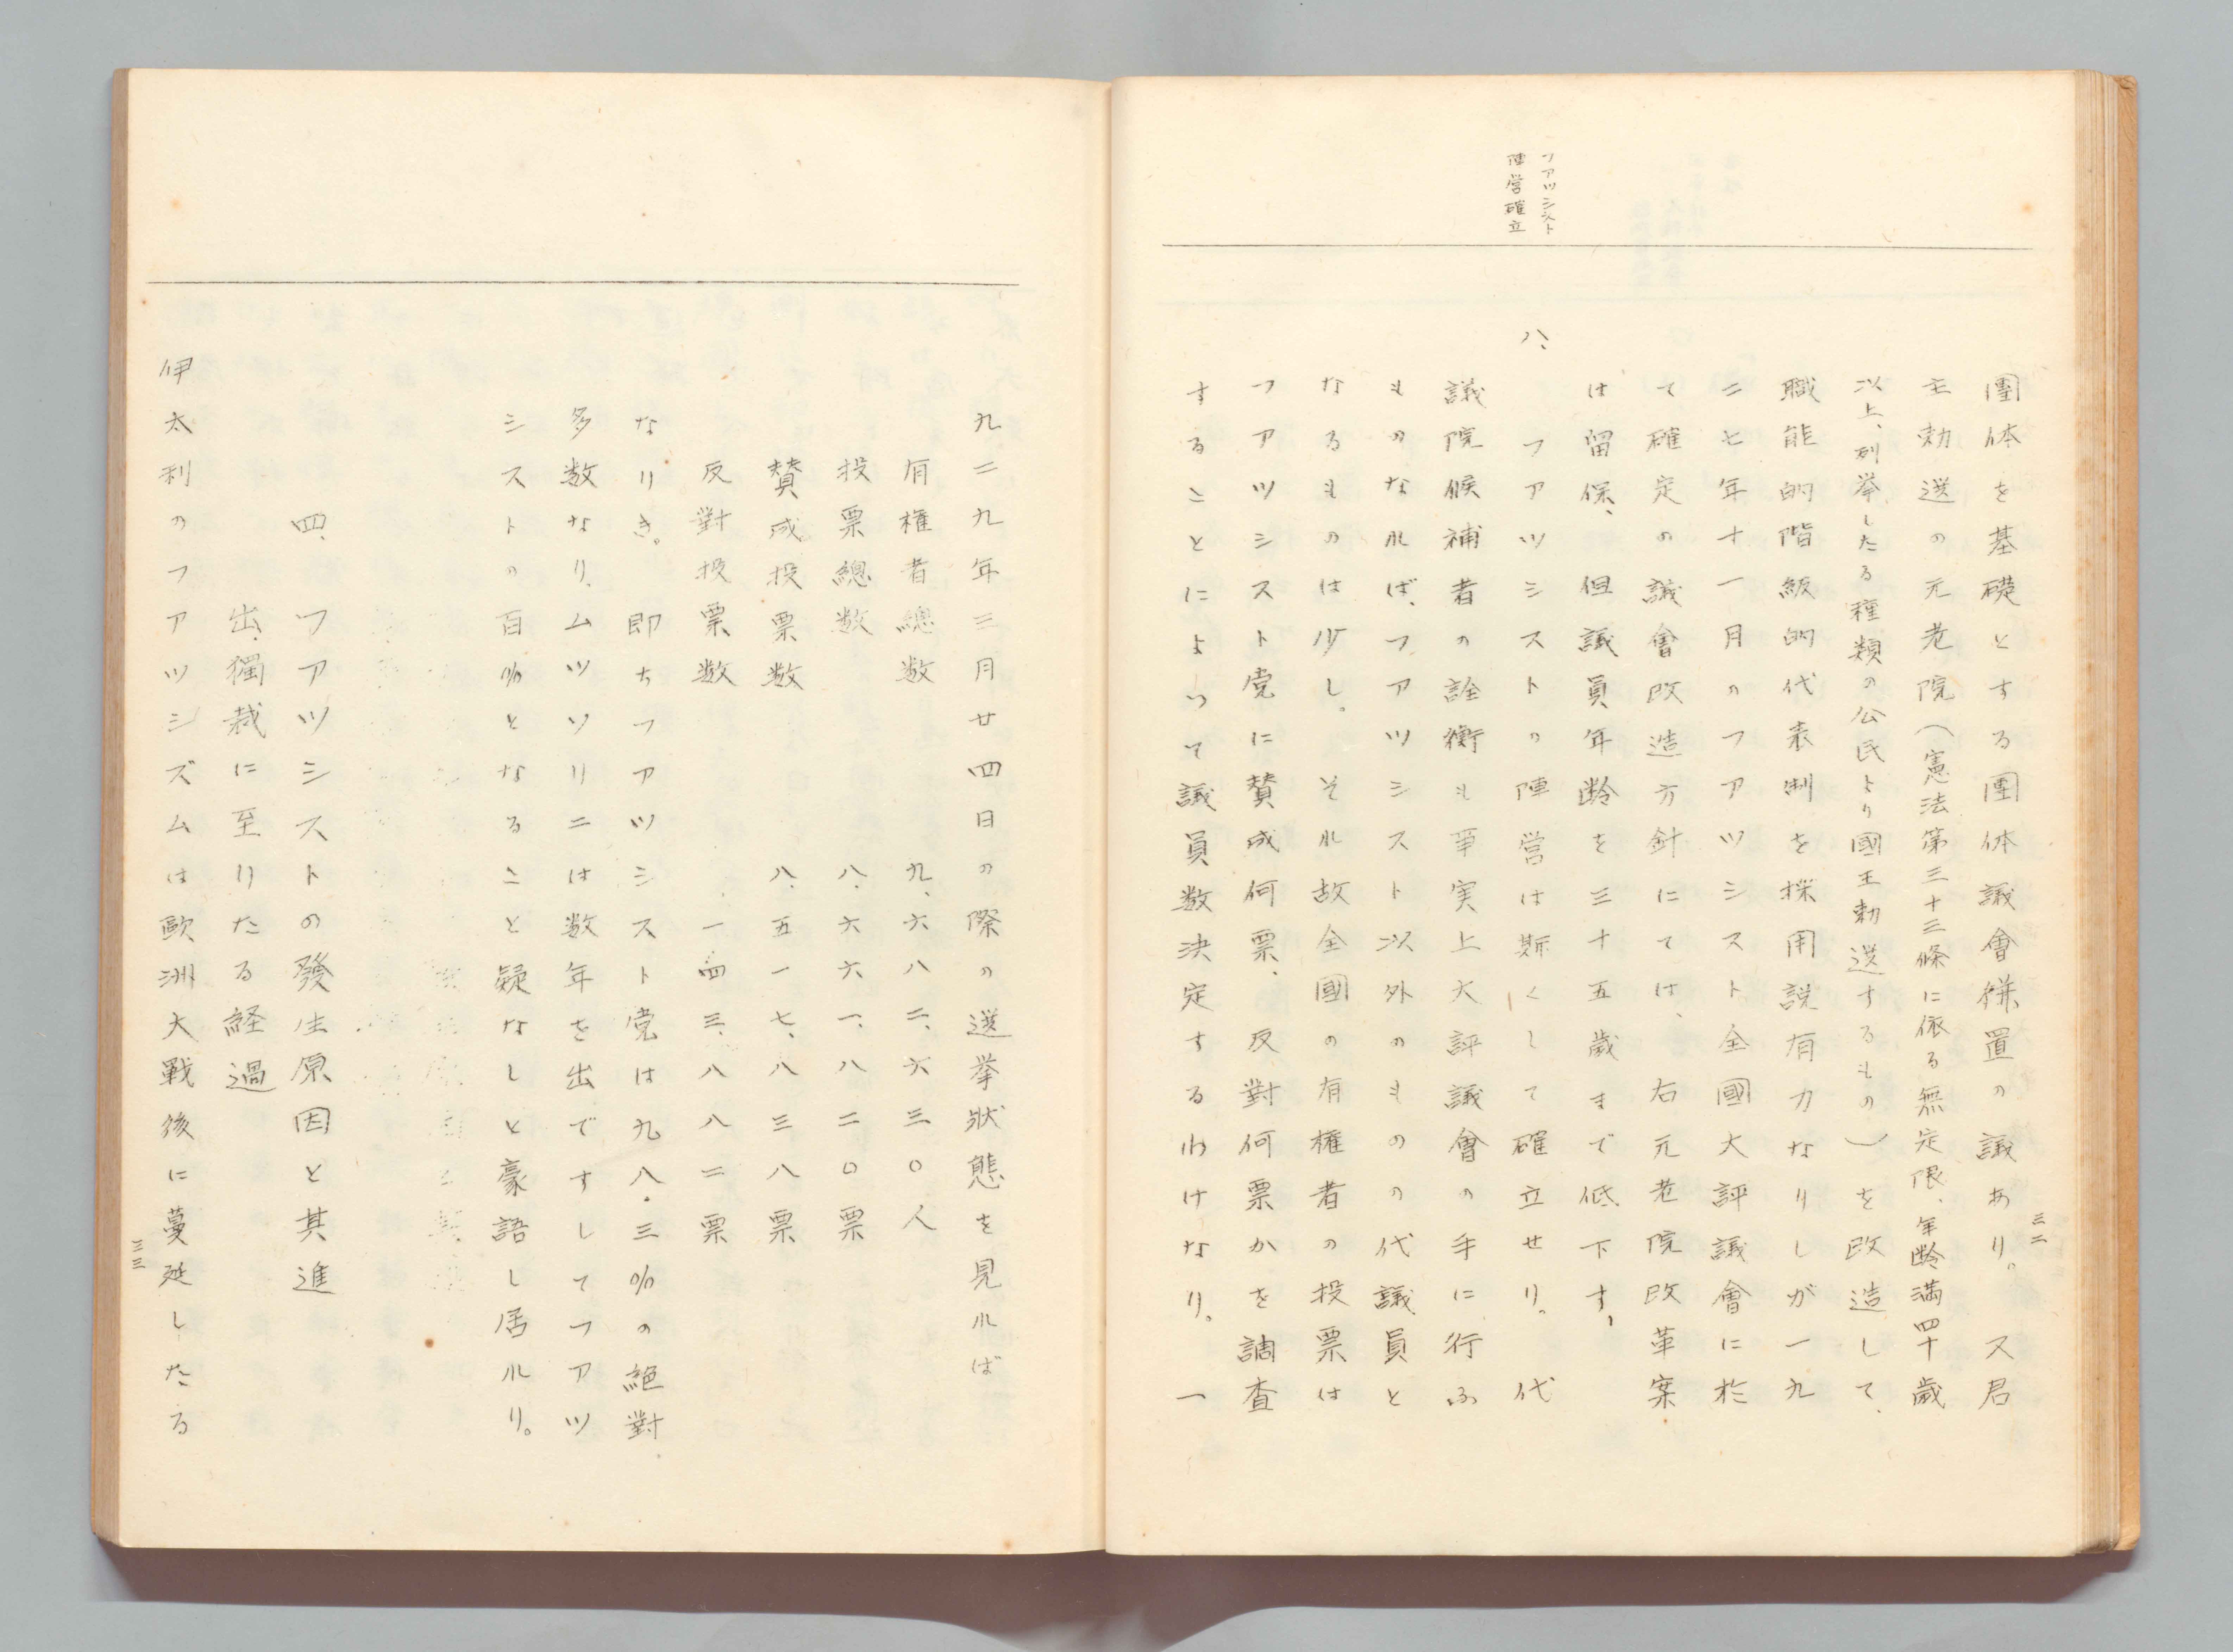 三二
ファツシスト
陣営確立
團体を基礎とする團体議會併置の議あり。又君
主勅選の元老院(憲法第三十三條に依る無定限、年齢満四十歳
以上、列挙したる種類の公民より國王勅選するもの)を改造して、
職能的階級的代表制を採用説有力なりしが一九
二七年十一月のファツシスト全國大評議會に於
て確定の議會改造方針にては、右元老院改革案
は留保、但議員年齢を三十五歳まで低下す、
八、ファツシストの陣営は斯くして確立せり。代
議院候補者の詮衡も事実上大評議會の手に行ふ
ものなれば、ファツシスト以外のものの代議員と
なるものは少し。それ故全國の有権者の投票は
ファツシスト党に賛成何票、反對何票かを調査
することによつて議員数決定するわけなり。一
九二九年三月廿四日の際の選挙状態を見れば
有権者總数 九、六八二、六三〇人
投票總数 八、六六一、八二〇票
賛成投票数 八、五一七、八三八票
反對投票数 一四三、八八二票
なりき。即ちファツシスト党は九八・三%の絶對
多数なり、ムツソリニは数年を出でずしてファツ
シストの百%となること疑なしと豪語し居れり。
四、ファツシストの發生原因と其進
出、獨裁に至りたる経過
伊太利のファツシズムは歐洲大戰後に蔓延したる
三三